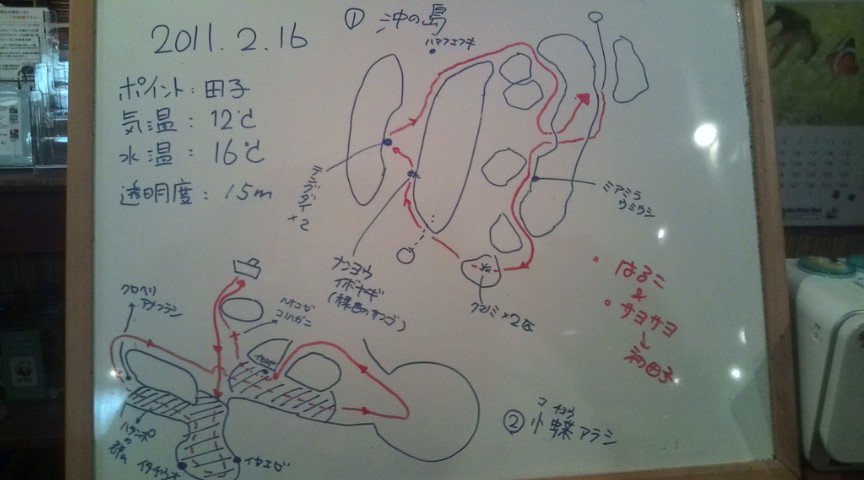 2011.2.16
① 沖の島
ハマフエフキ
ポイント：田子
気温： 12℃
水温： 16℃
透明度： 15m
テングダイ
×2
ミアミラ
ウミウシ
ナンヨウ
イボヤギ
(緑色のサンゴ)
クマノミ×2匹
・はるこ
&
・サヨサヨ
と
初田子
クロヘリ
アメフラシ
ハタンポ
イタチウオ
イセエビ
② 小蝶アラシ
コ チョウ